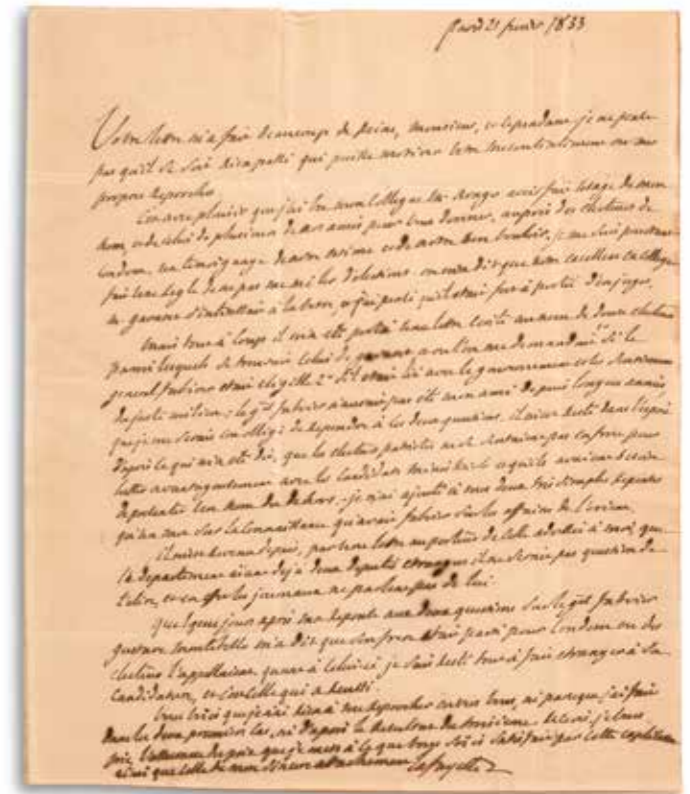 Paris 21 janvier 1833
Votre lettre m'a fait beaucoup de peine, Monsieur, et cependant je ne pense
pas qu'il se soit rien passé qui puisse motiver votre mécontentement ou mes
propres reproches.
C'est avec plaisir que j'ai vu mon Collegue Mr Arago avoir fait usage de mon
nom, et de celui de plusieurs de nos amis pour vous donner, auprès des électeurs de
Condom, un témoignage de notre estime et de notre
fait une regle de ne pas me meler d'elections. on dit que notre excellent Collegue
Mais tout à coup il m'a été porté une lettre écrite au nom de douze électeurs
parmi lesquels se trouvait celui de et où l'on me demandait 1° si le
general Fabvier était eligible 2° s'il était lié avec le gouvernement et les
de juste milieu; le gal Fabvier n'aurait pas été mon ami depuis longues années
que je me serais cru obligé de repondre à ces deux questions. il m'est resté dans l'esprit
d'après ce qui m'a été dit, que les électeurs patriotes ne se sentaient pas en force pour
lutter avantageusement avec le Candidat ministeriel et qu'ils avaient besoin
de presenter un nom du dehors. je n'ai ajouté à mes deux très simples reponses
qu'un mot sur la connaissance qu'avait Fabvier sur les affaires de l'orient.
Il m'est revenu depuis, par une lettre au porteur de celle adressée à moi, que
le departement ayant deja deux deputés etrangers il ne serait pas question de
l'élire, et en effet les journaux ne parlent pas de lui.
Quelques jours après ma reponse aux deux questions sur le gal Fabvier
gustave montebello m'a dit que son frere était parti pour Condom où des
électeurs l'appellaient. quant à celui ci je suis resté tout à fait etranger à sa
Candidature, et c'est celle qui a reussi
Vous voyez que je n'ai rien à me reprocher envers vous, ni parceque j'ai fait
dans les deux premiers cas, ni d'après le resultat du troisieme. recevez je vous
prie, l'assurance du prix que je mets à ce que vous soyez satisfait par cette explication
ainsi que celle de mon sincere attachement Lafayette